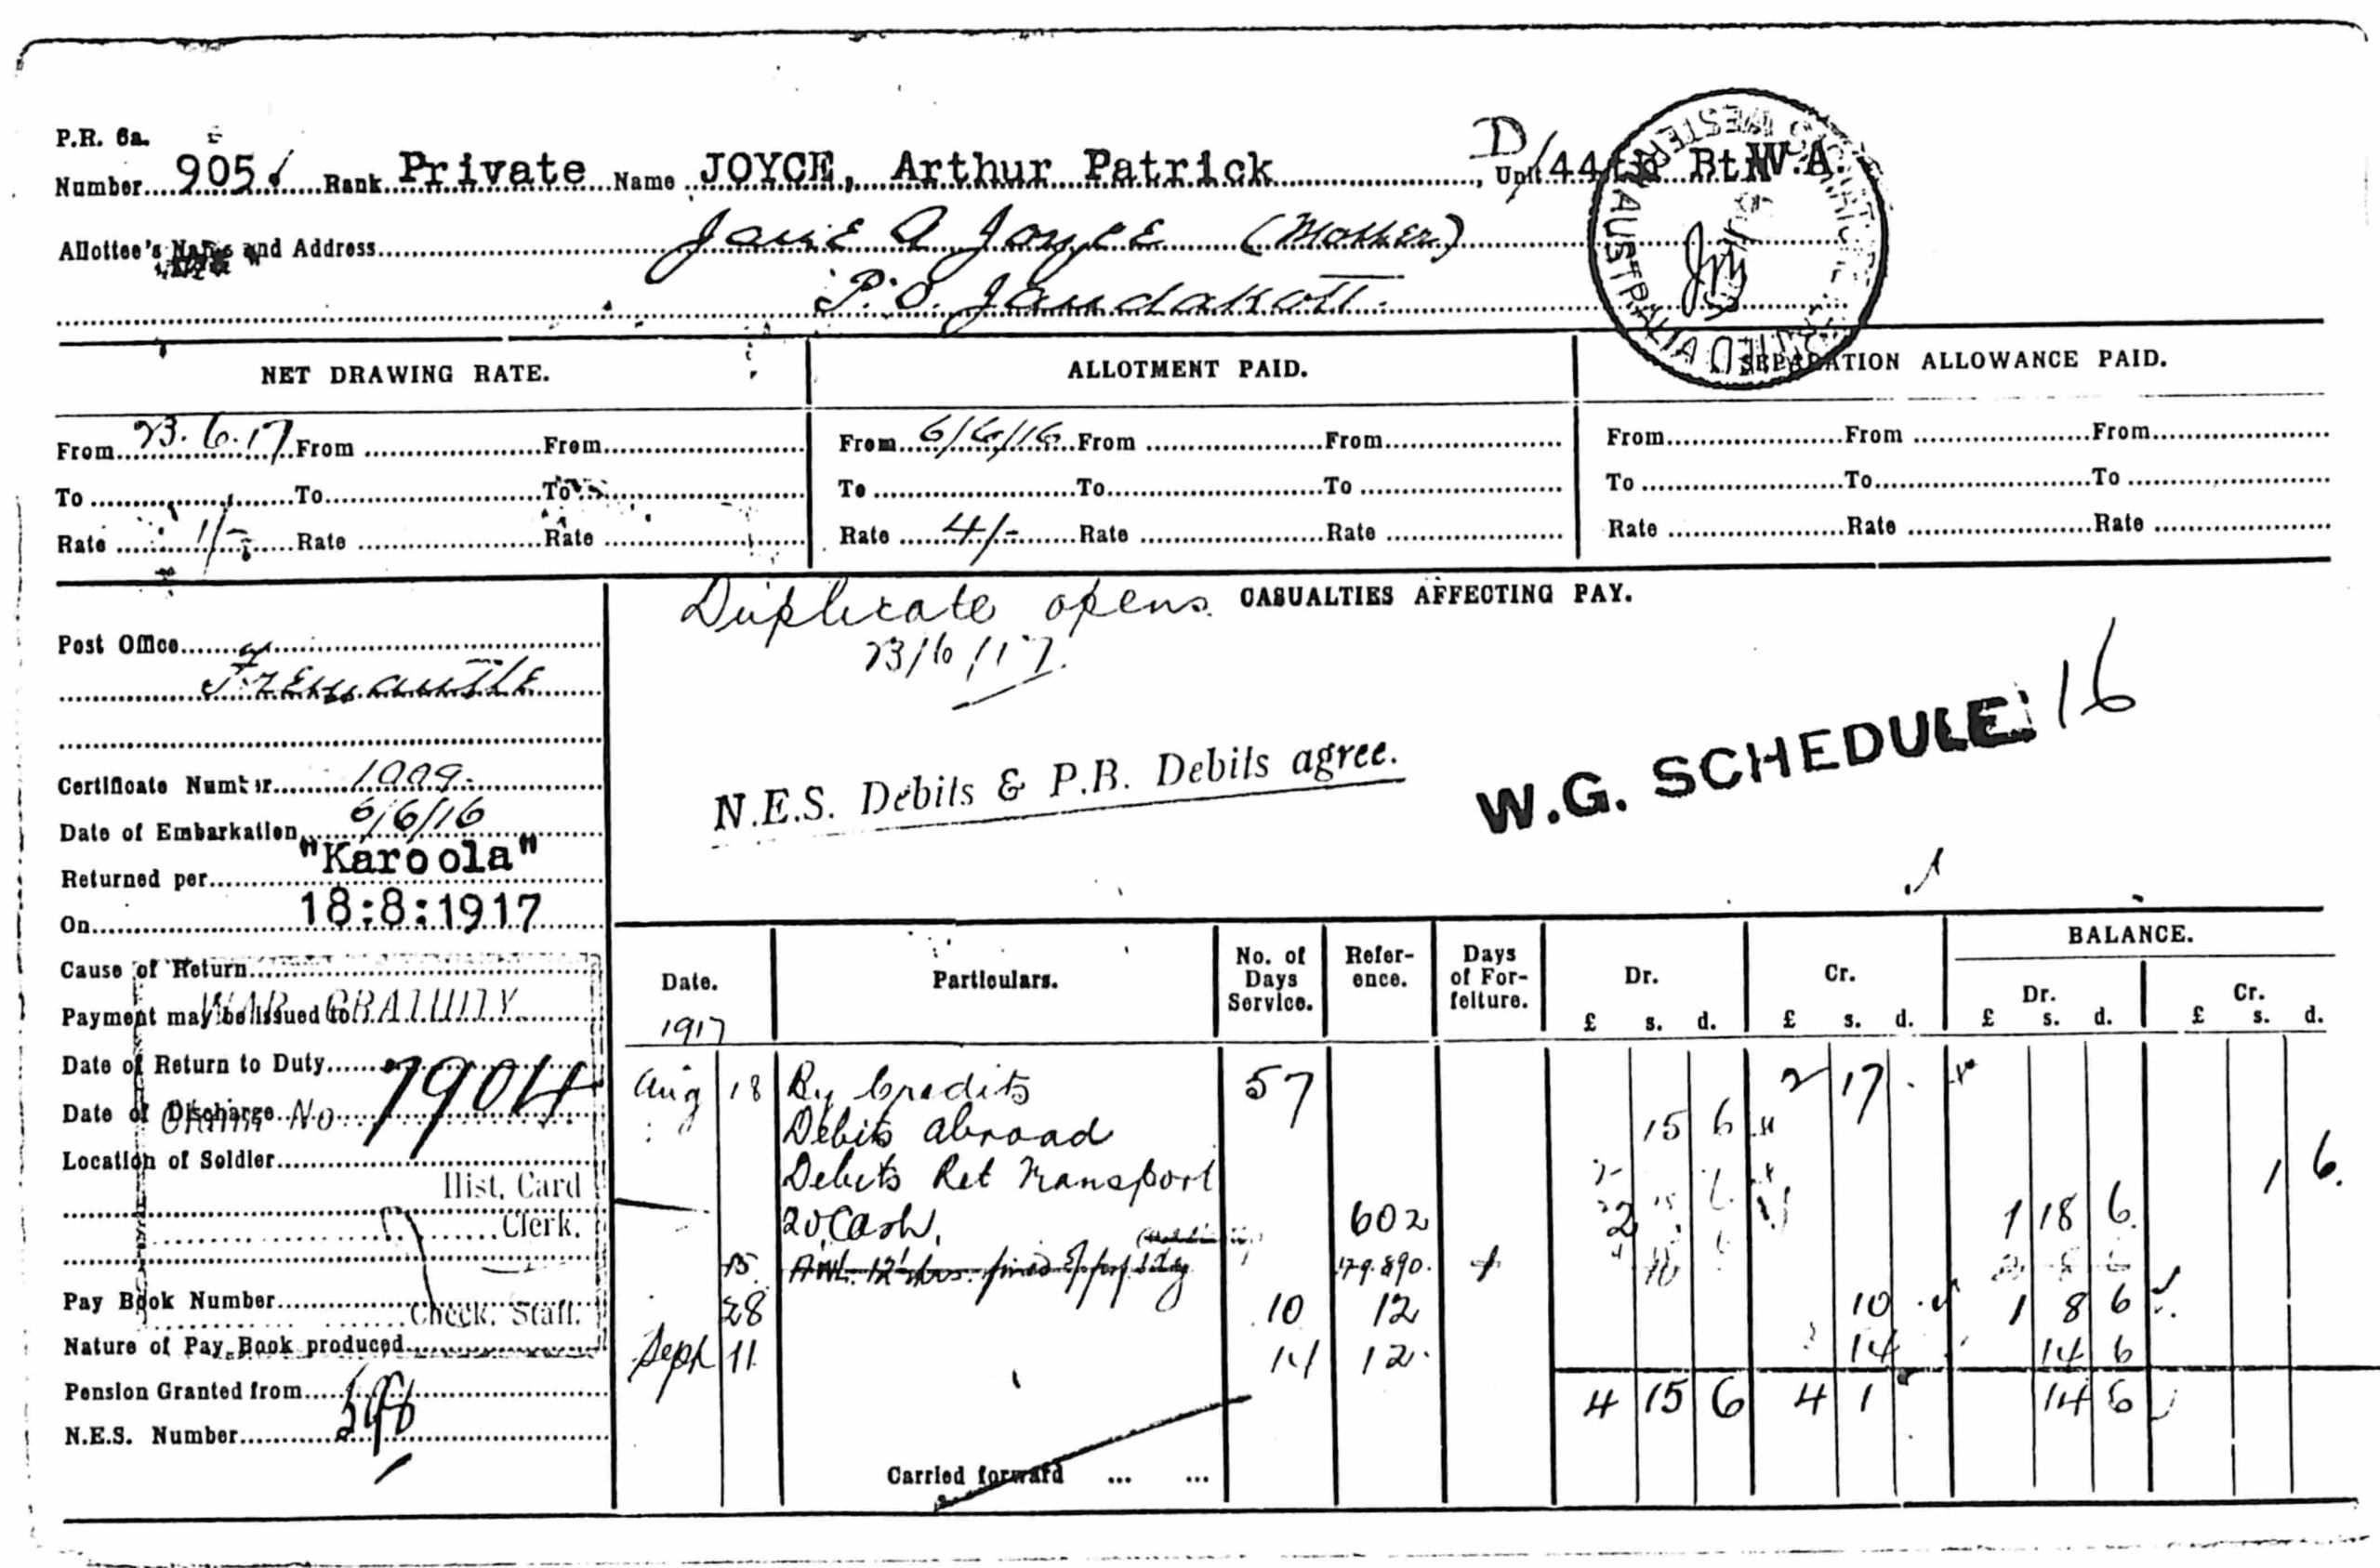 P.R. 6a.
Number 905 Rank Private Name JOYCE, Arthur Patrick, Unit D/44th Btn W.A.
Allottee's Name and Address Jane A Joyce (Mother)
P.O. Jandakott.
NET DRAWING RATE. ALLOTMENT PAID. SEPARATION ALLOWANCE PAID.
From 23.6.17 From From From 6/6/16 From From From From From
To To To To To To To To To
Rate 1/- Rate Rate Rate 4/- Rate Rate Rate Rate Rate
Duplicate opens CASUALTIES AFFECTING PAY.
23/6/17.
Post Office
Fremantle
N.E.S. Debits & P.B. Debits agree.
W.G. SCHEDULE 16
Certificate Number
Date of Embarkation 6/6/16
Returned per "Karoola"
On 18:8:1917
Cause of Return
Payment may be issued to
WAR GRATUITY
Date of Return to Duty
Date of Discharge
Claim No 7904
Location of Soldier
Hist. Card
Clerk.
Pay Book Number
Check. Staff.
Nature of Pay Book produced
Pension Granted from
N.E.S. Number
Date. Particulars. No. of Days Service. Reference. Days of Forfeiture. Dr. Cr. BALANCE.
Dr. Cr.
£ s. d. £ s. d. £ s. d. £ s. d.
1917
Aug 18 By Credits 57 2 17
Debits abroad 15 6
Debits Ret Transport 1 6
20 Cash 602 2 1 18 6
AWL 12 hrs. fined
28 10 12 10 1 8 6
Sept 11 14 12 14 14 6
4 15 6 4 1 14 6
Carried forward ... ...